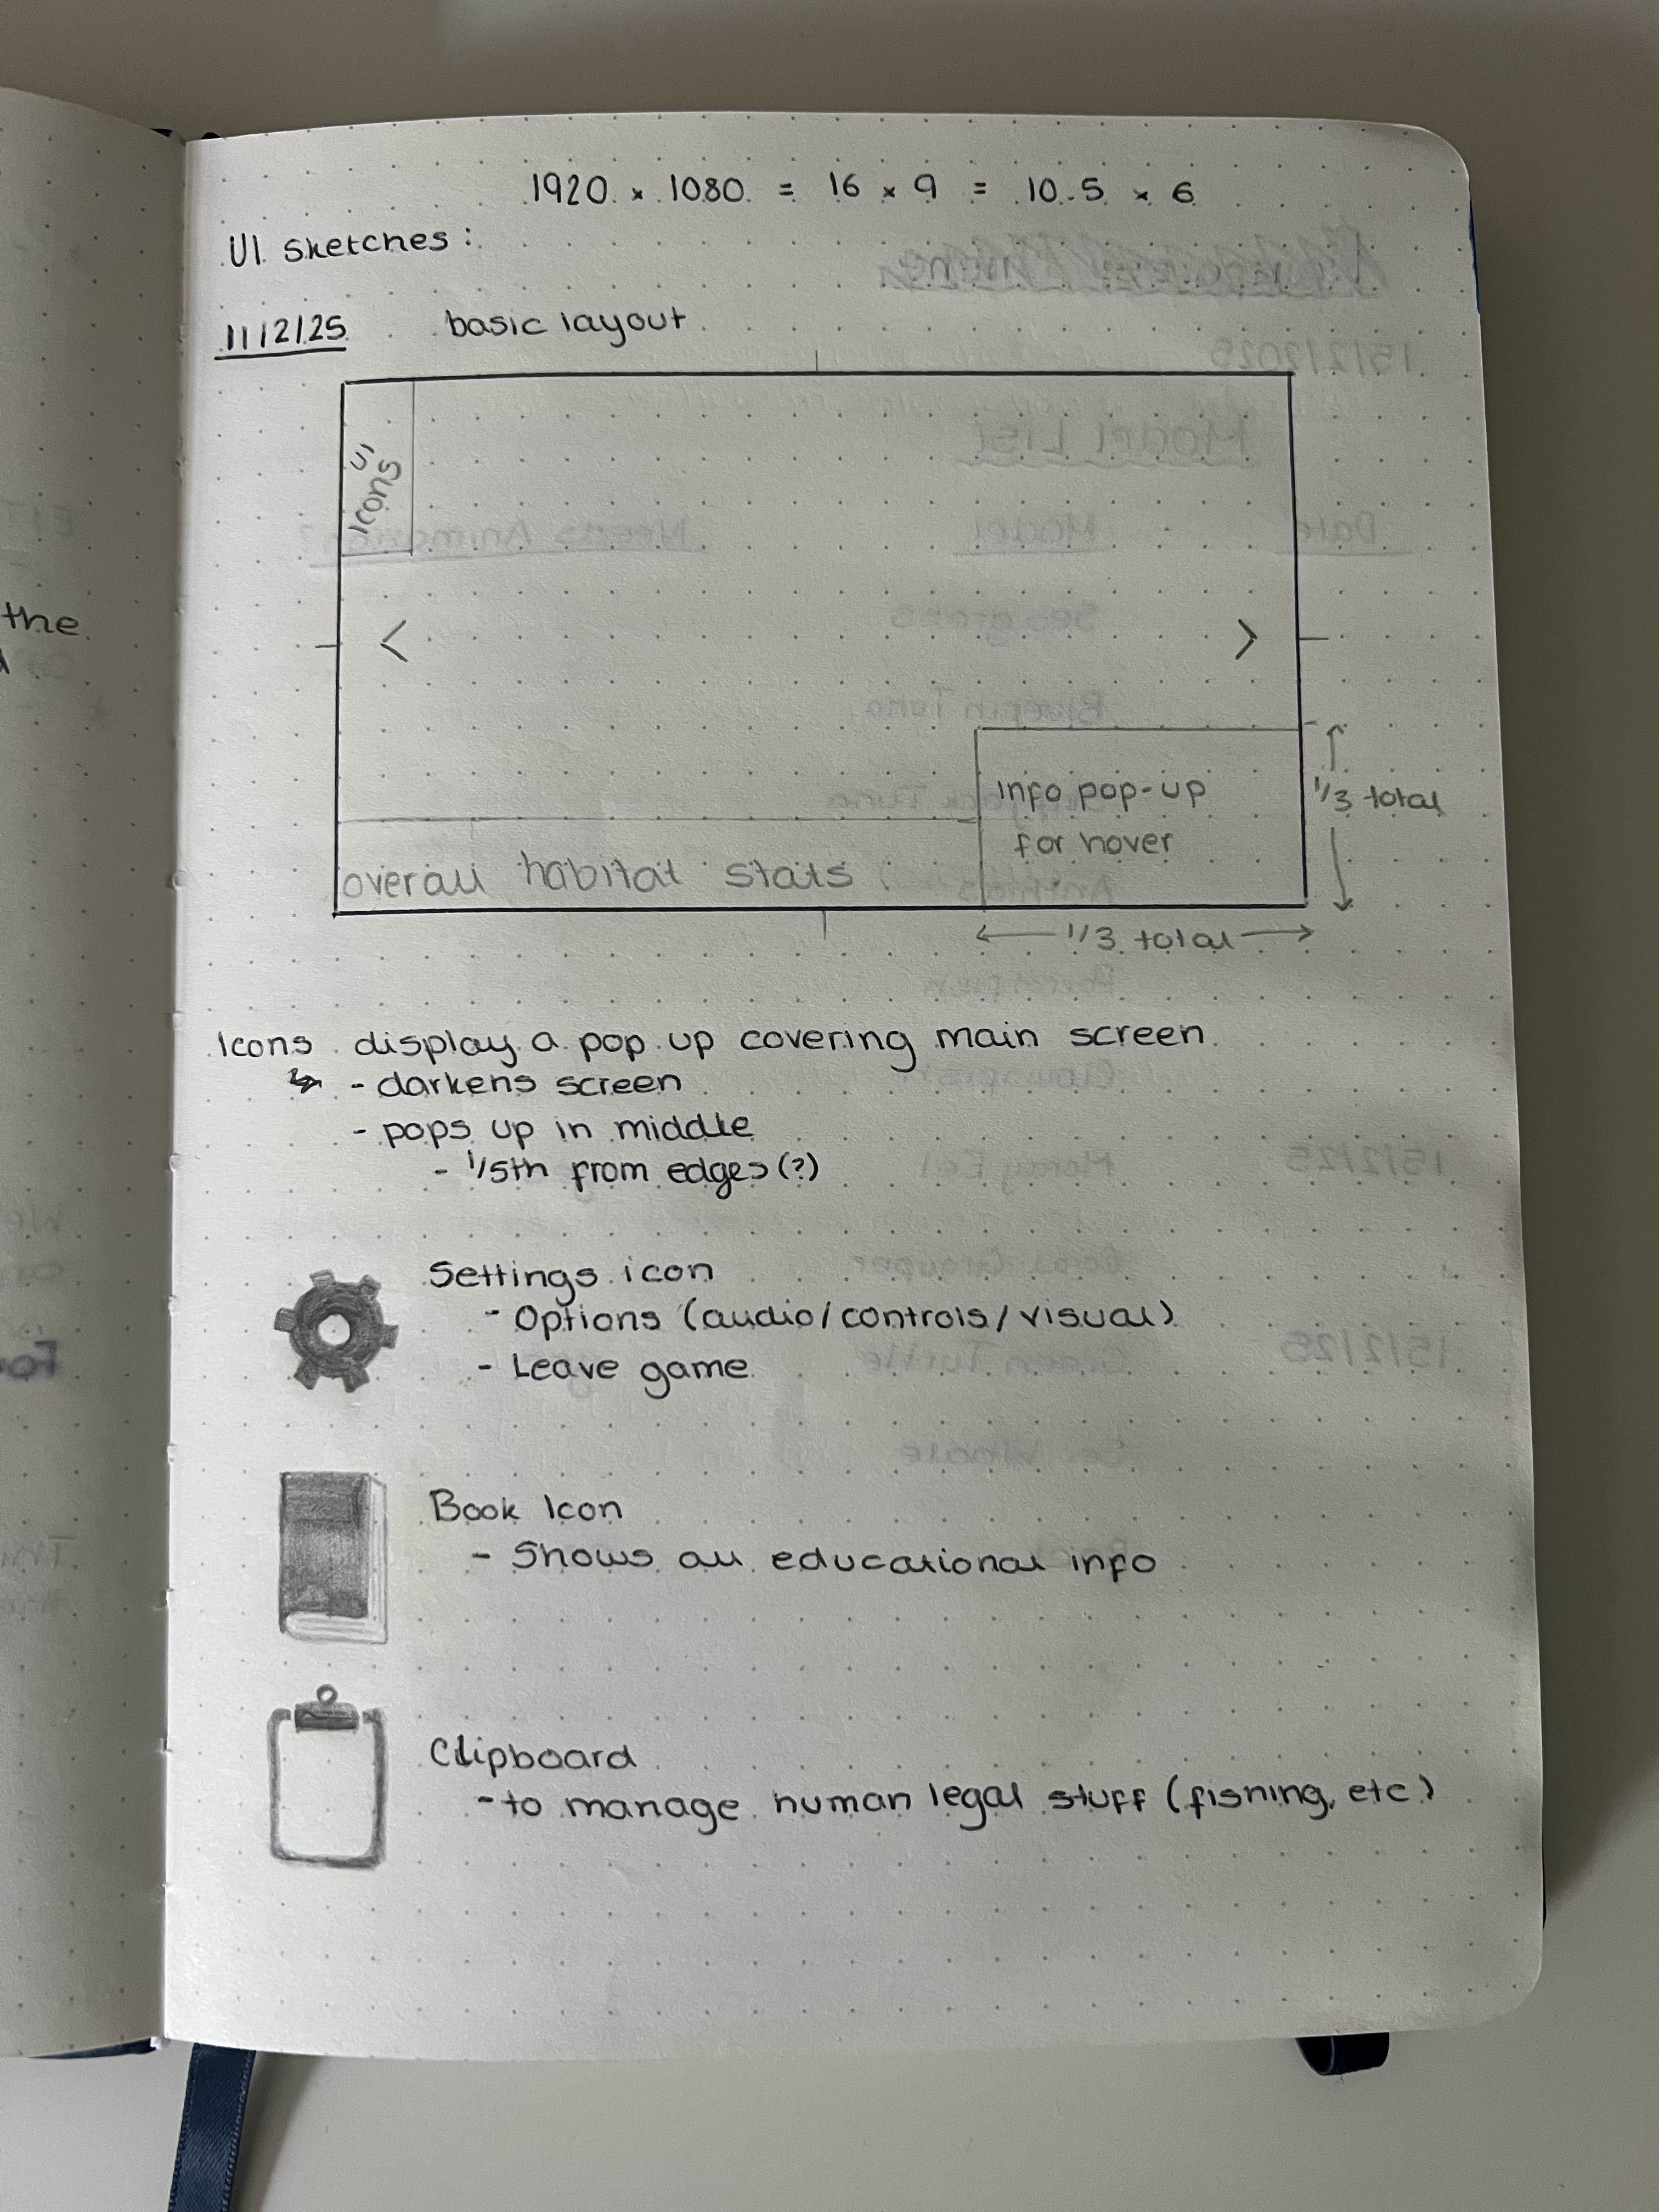 1920 x 1080 = 16 x 9 = 10.5 x 6
UI Sketches:
11/2/25 basic layout
UI
Icons
<
>
info pop-up
for hover
1/3 total
overall habitat stats
1/3 total
Icons display a pop up covering main screen
- darkens screen
- pops up in middle
- 1/5th from edges (?)
Settings icon
- Options (audio/controls/visual)
- Leave game
Book Icon
- Shows all educational info
Clipboard
- to manage human legal stuff (fishing, etc)
the